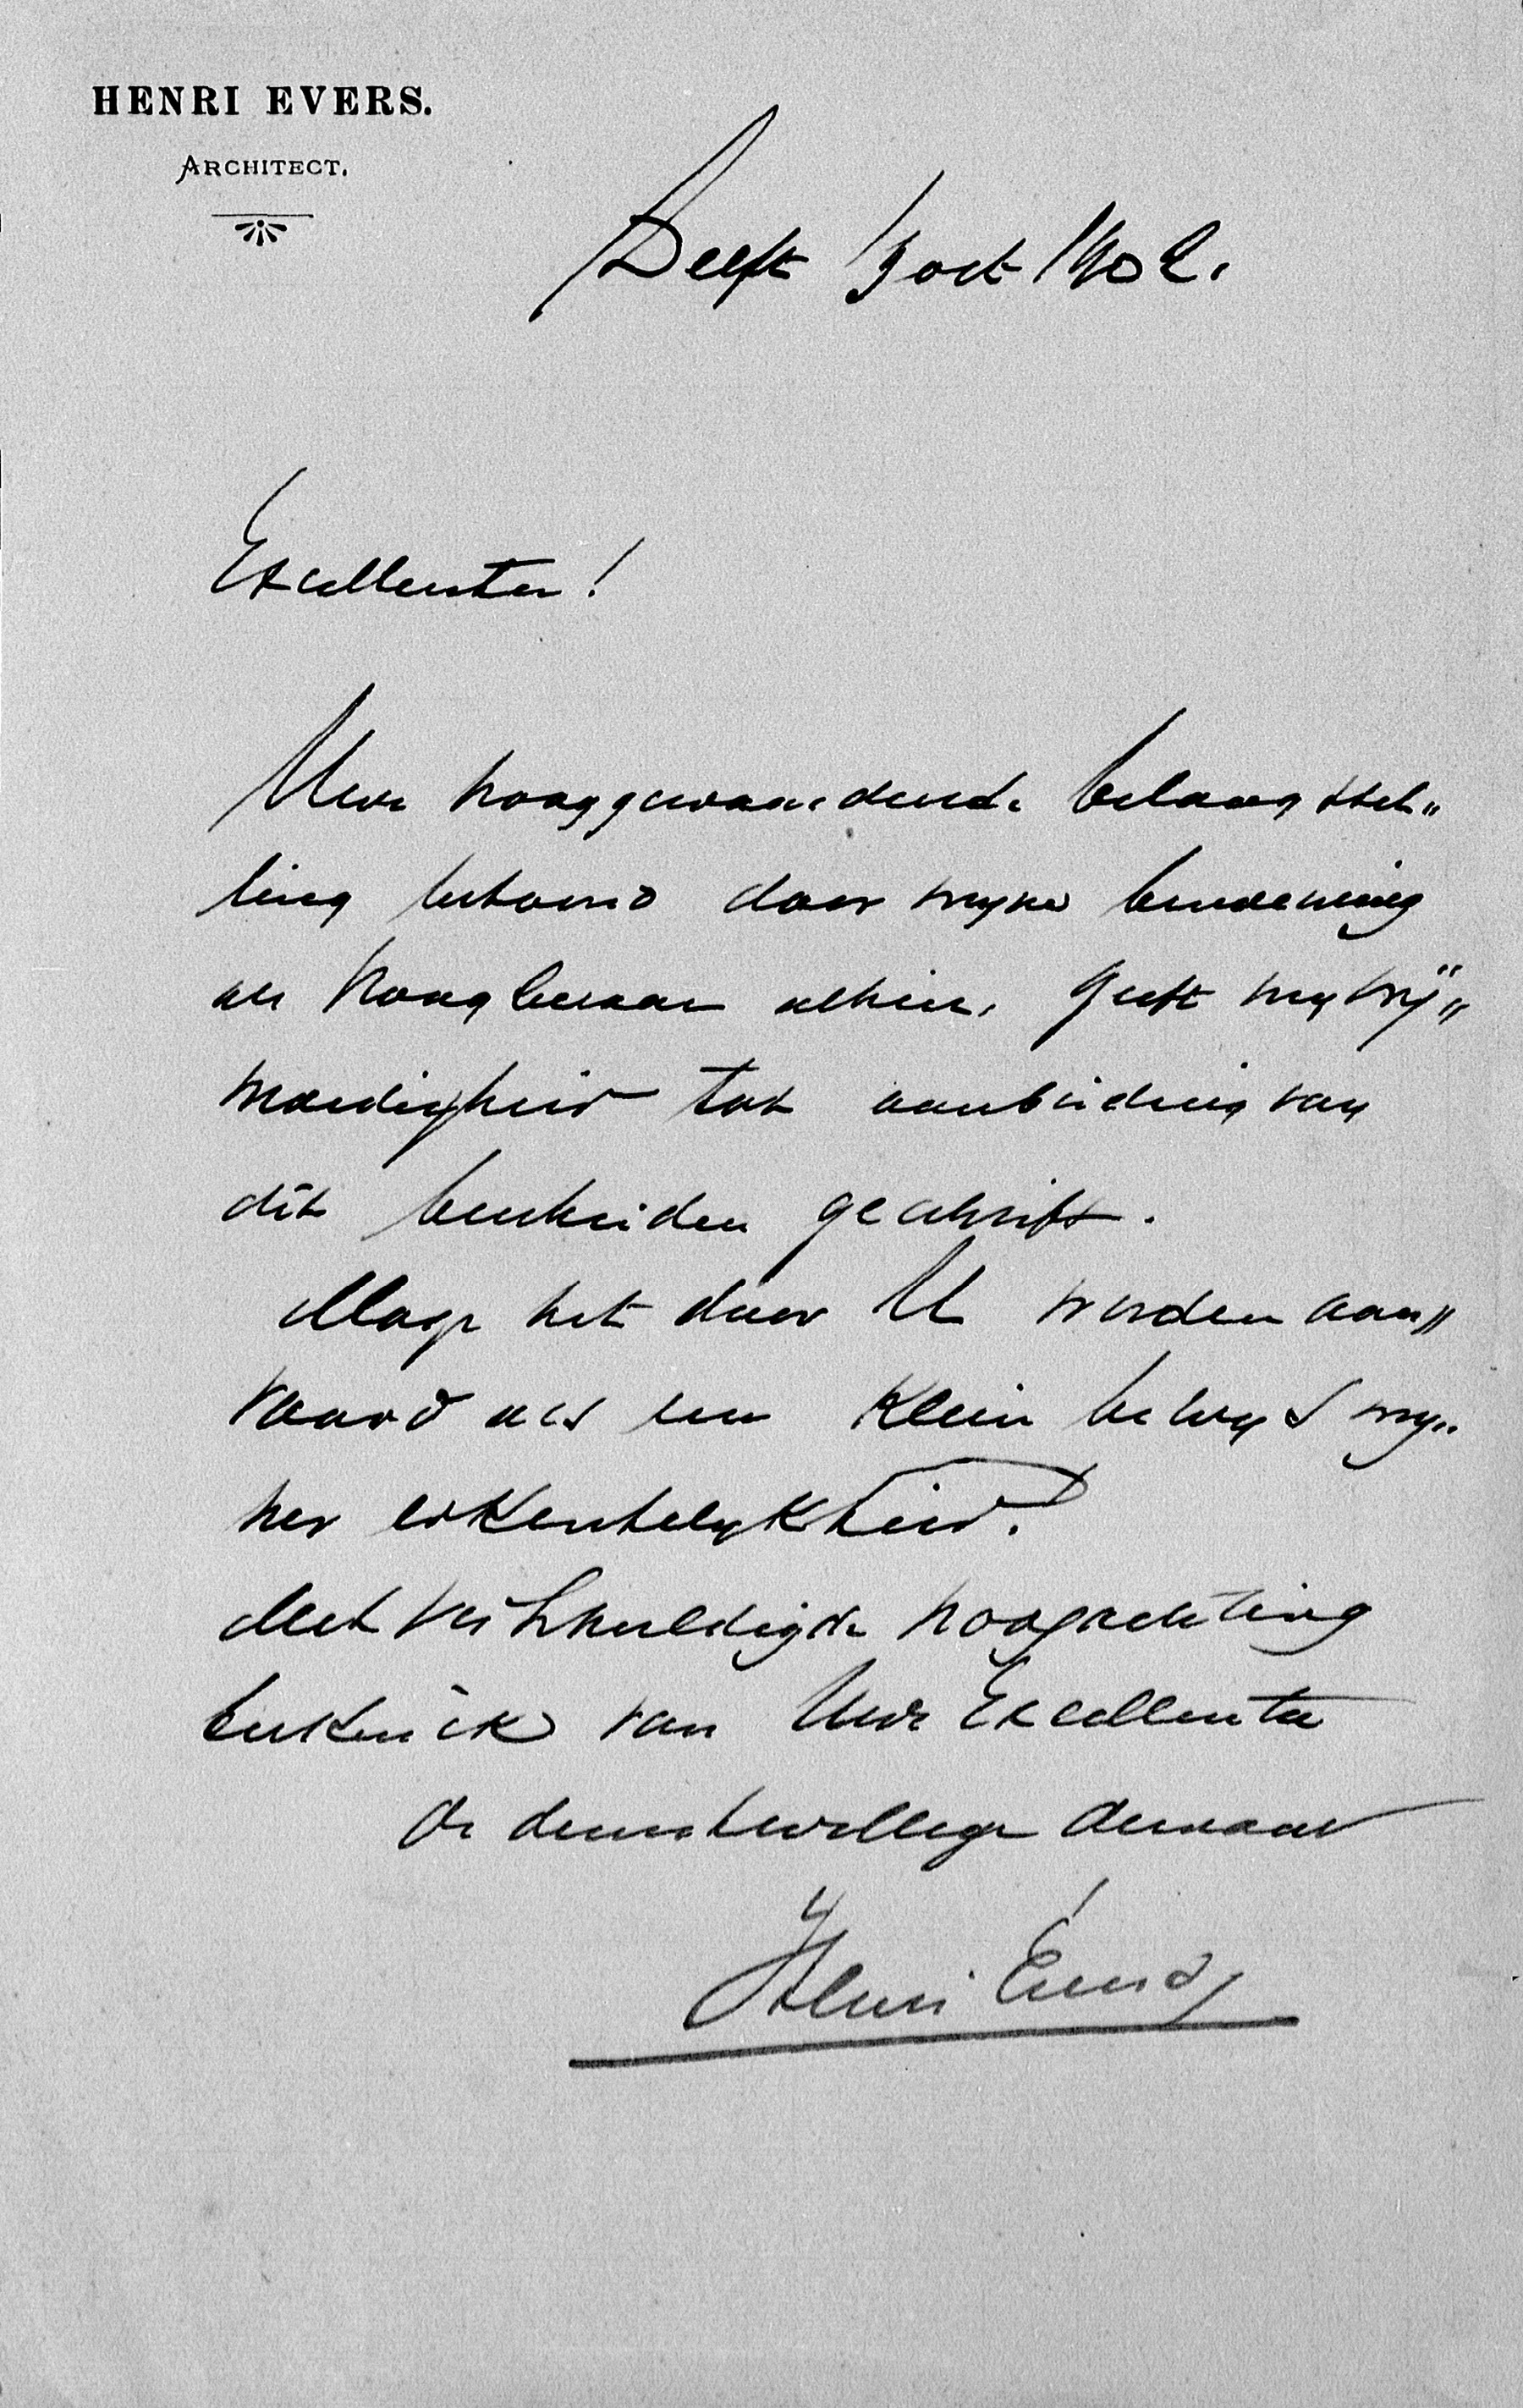 HENRI EVERS.
ARCHITECT.
Delft 13 oct 1902.
Excellentie!
Uwe hooggewaardeerde belangstel„
ling betoond door mijne benoeming
als Hoogleeraar alhier, geeft mij vrij„
moedigheid tot aanbieding van
dit bescheiden geschrift.
Moge het door U worden aan„
vaard als een klein bewijs mij„
ner erkentelijkheid.
Met verschuldigde hoogachting
teeken ik van Uwe Excellentie
de dienstwillige dienaar
Henri Evers